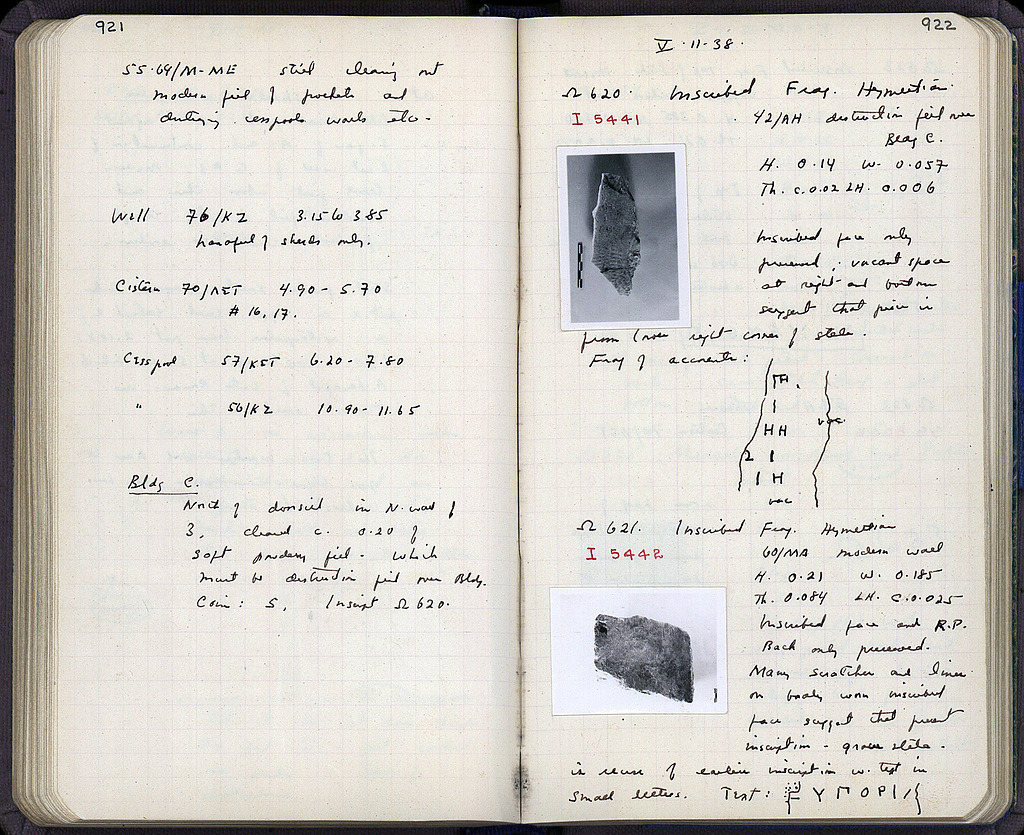 921
55-69/M-ME still cleaning out
modern fill of pockets and
outlying cesspools walls etc-
Well 76/KZ 3.15 to 3.85
handful of sherds only.
Cistern 70/ 4.90 - 5.70
# 16, 17.
Cesspool 57/ 6.20 - 7.80
" 56/KZ 10.90 - 11.65
Bldg C.
North of in N. wall of
3, cleared c. 0.20 of
soft powdery fill - which
must be destruction fill over Bldg.
Coin: 5, Inscript Ω 620.
922
V-11-38.
Ω 620 Inscribed Frag. Hymettian.
I 5441
42/AH destruction fill over
Bldg C.
H. 0.14 W. 0.057
Th. c. 0.02 LH. 0.006
Inscribed face only
preserved; vacant space
at right and bottom
suggest that piece is
from lower right corner of stele.
Frag of accounts:
H.
I
HH
vac
2 I
I H
vac
Ω 621. Inscribed Frag. Hymettian
I 5442
60/MA modern wall
H. 0.21 W. 0.185
Th. 0.084 LH. c. 0.025
Inscribed face and R.P.
Back only preserved.
Many scratches and lines
on badly worn inscribed
face suggest that present
inscription - grave stele -
is reuse of earlier inscription w. text in
small letters. Text: Υ Π Ο Ρ Ι